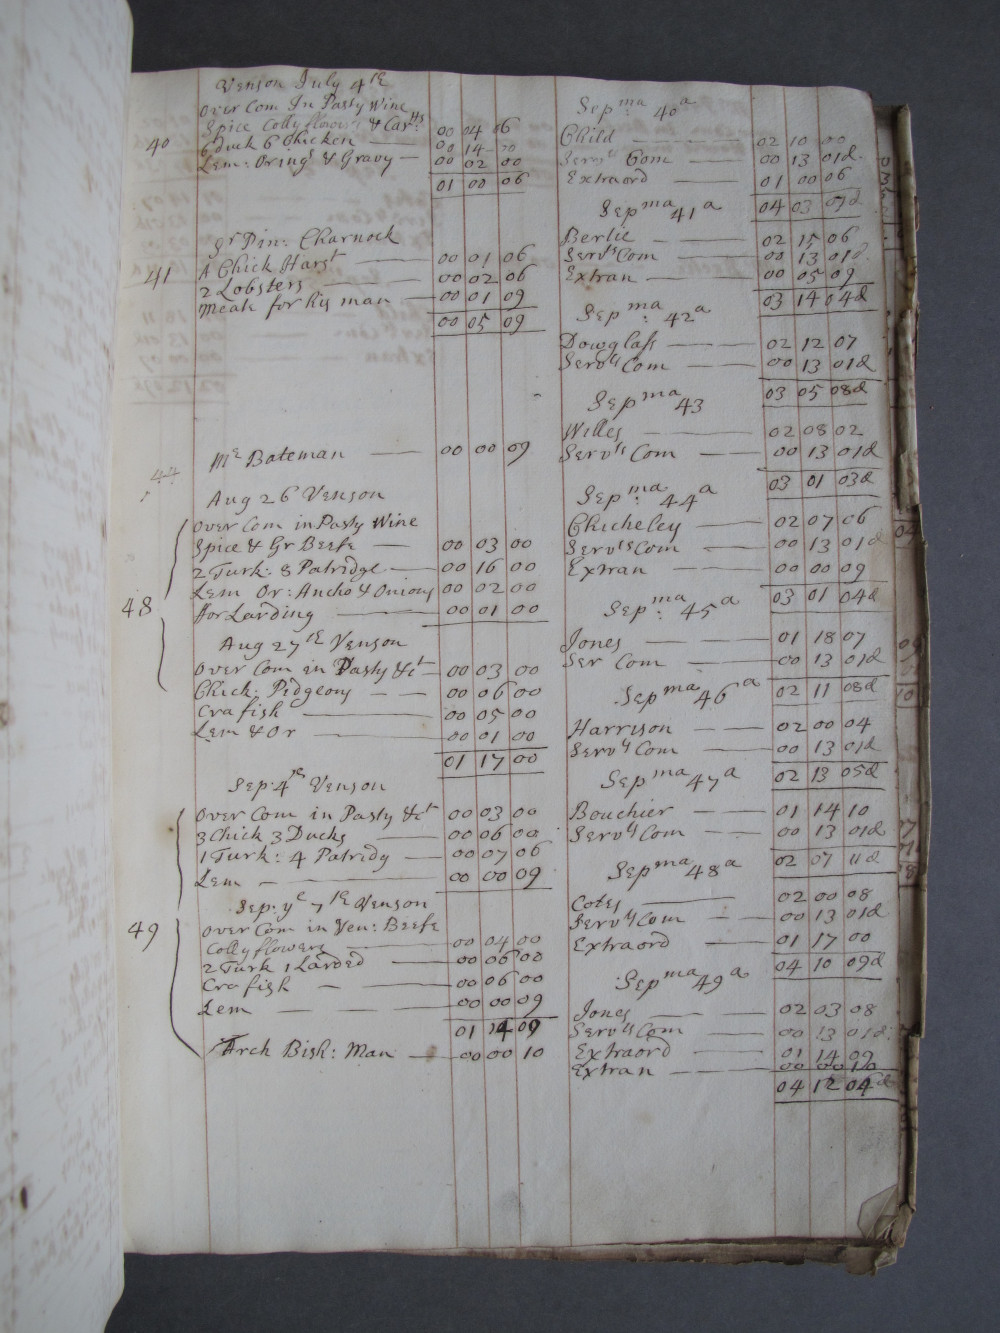 Venson July 4th
Over Com In Pasty Wine
Spice Collyflowers & Cartts 00 04 06
40 6 Duck 6 Chicken 00 14 00
Lem: Oringes & Gravy 00 02 00
01 00 06
gr Din: Charnock
41 A Chick Harst 00 01 06
2 Lobsters 00 02 06
Meat for his man 00 01 09
00 05 09
44 Mr Bateman 00 00 09
Aug 26 Venson
Over Com in Pasty Wine
Spice & Gr Beefe 00 03 00
2 Turk: 8 Patridge 00 16 00
Lem Or: Ancho & Onions 00 02 00
48 ffor Larding 00 01 00
Aug 27th Venson
Over Com in Pasty &ct 00 03 00
Chick: Pidgeons 00 06 00
Crafish 00 05 00
Lem & Or 00 01 00
01 17 00
Sep: 4th Venson
Over Com in Pasty &ct 00 03 00
3 Chick 3 Ducks 00 06 00
1 Turk: 4 Patridg 00 07 06
Lem 00 00 09
Sep: ye 7th Venson
49 Over Com in Ven: Beefe
Collyflowers 00 04 00
2 Turk 1 Larded 00 06 00
Crafish 00 06 00
Lem 00 00 09
01 14 09
Arch Bish: Man 00 00 10
Sepma 40a
Child 02 10 00
Servts Com 00 13 01d
Extraord 01 00 06
04 03 07d
Sepma 41a
Bertie 02 15 06
Servts Com 00 13 01d
Extran 00 05 09
03 14 04d
Sepma 42a
Dowglass 02 12 07
Servts Com 00 13 01d
03 05 08d
Sepma 43
Willes 02 08 02
Servts Com 00 13 01d
03 01 03d
Sepma 44a
Chicheley 02 07 06
Servts Com 00 13 01d
Extran 00 00 09
03 01 04d
Sepma 45a
Jones 01 18 07
Ser Com 00 13 01d
02 11 08d
Sepma 46a
Harrison 02 00 04
Servts Com 00 13 01d
02 13 05d
Sepma 47a
Bouchier 01 14 10
Servts Com 00 13 01d
02 07 11d
Sepma 48a
Cotes 02 00 08
Servts Com 00 13 01d
Extraord 01 17 00
04 10 09d
Sepma 49a
Jones 02 03 08
Servts Com 00 13 01d
Extraord 01 14 09
Extran 00 00 10
04 12 04d